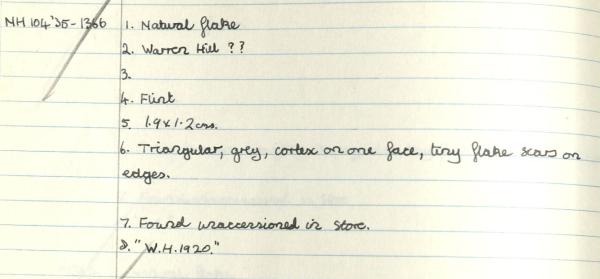 NH 104'35-1366 1. Natural flake
2. Warren Hill ??
3.
4. Flint
5. 1.9 x 1.2 cms.
6. Triangular, grey, cortex on one face, tiny flake scars on
edges.
7. Found unaccessioned in store.
8. "W.H. 1920."